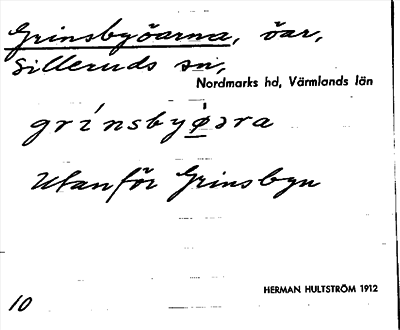 Grinsbyöarna, öar,
Silleruds sn,
Nordmarks hd, Värmlands län
grínsbyø̀ɔra
Utanför Grinsbyn
HERMAN HULTSTRÖM 1912
10